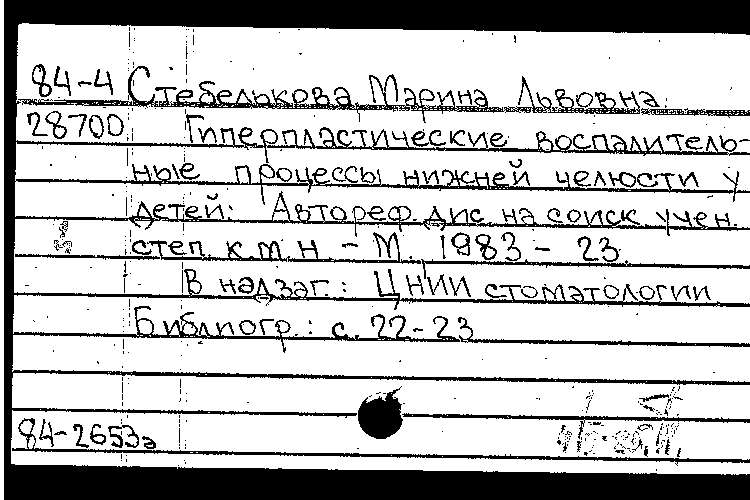 84-4 Стебелькова, Марина Львовна.
28700 Гиперпластические воспалитель-
ные процессы нижней челюсти у
детей: Автореф. дис. на соиск. учен.
степ. к.м.н. - М., 1983. - 23.
В надзаг.: ЦНИИ стоматологии.
Библиогр.: с. 22-23
84-2653а